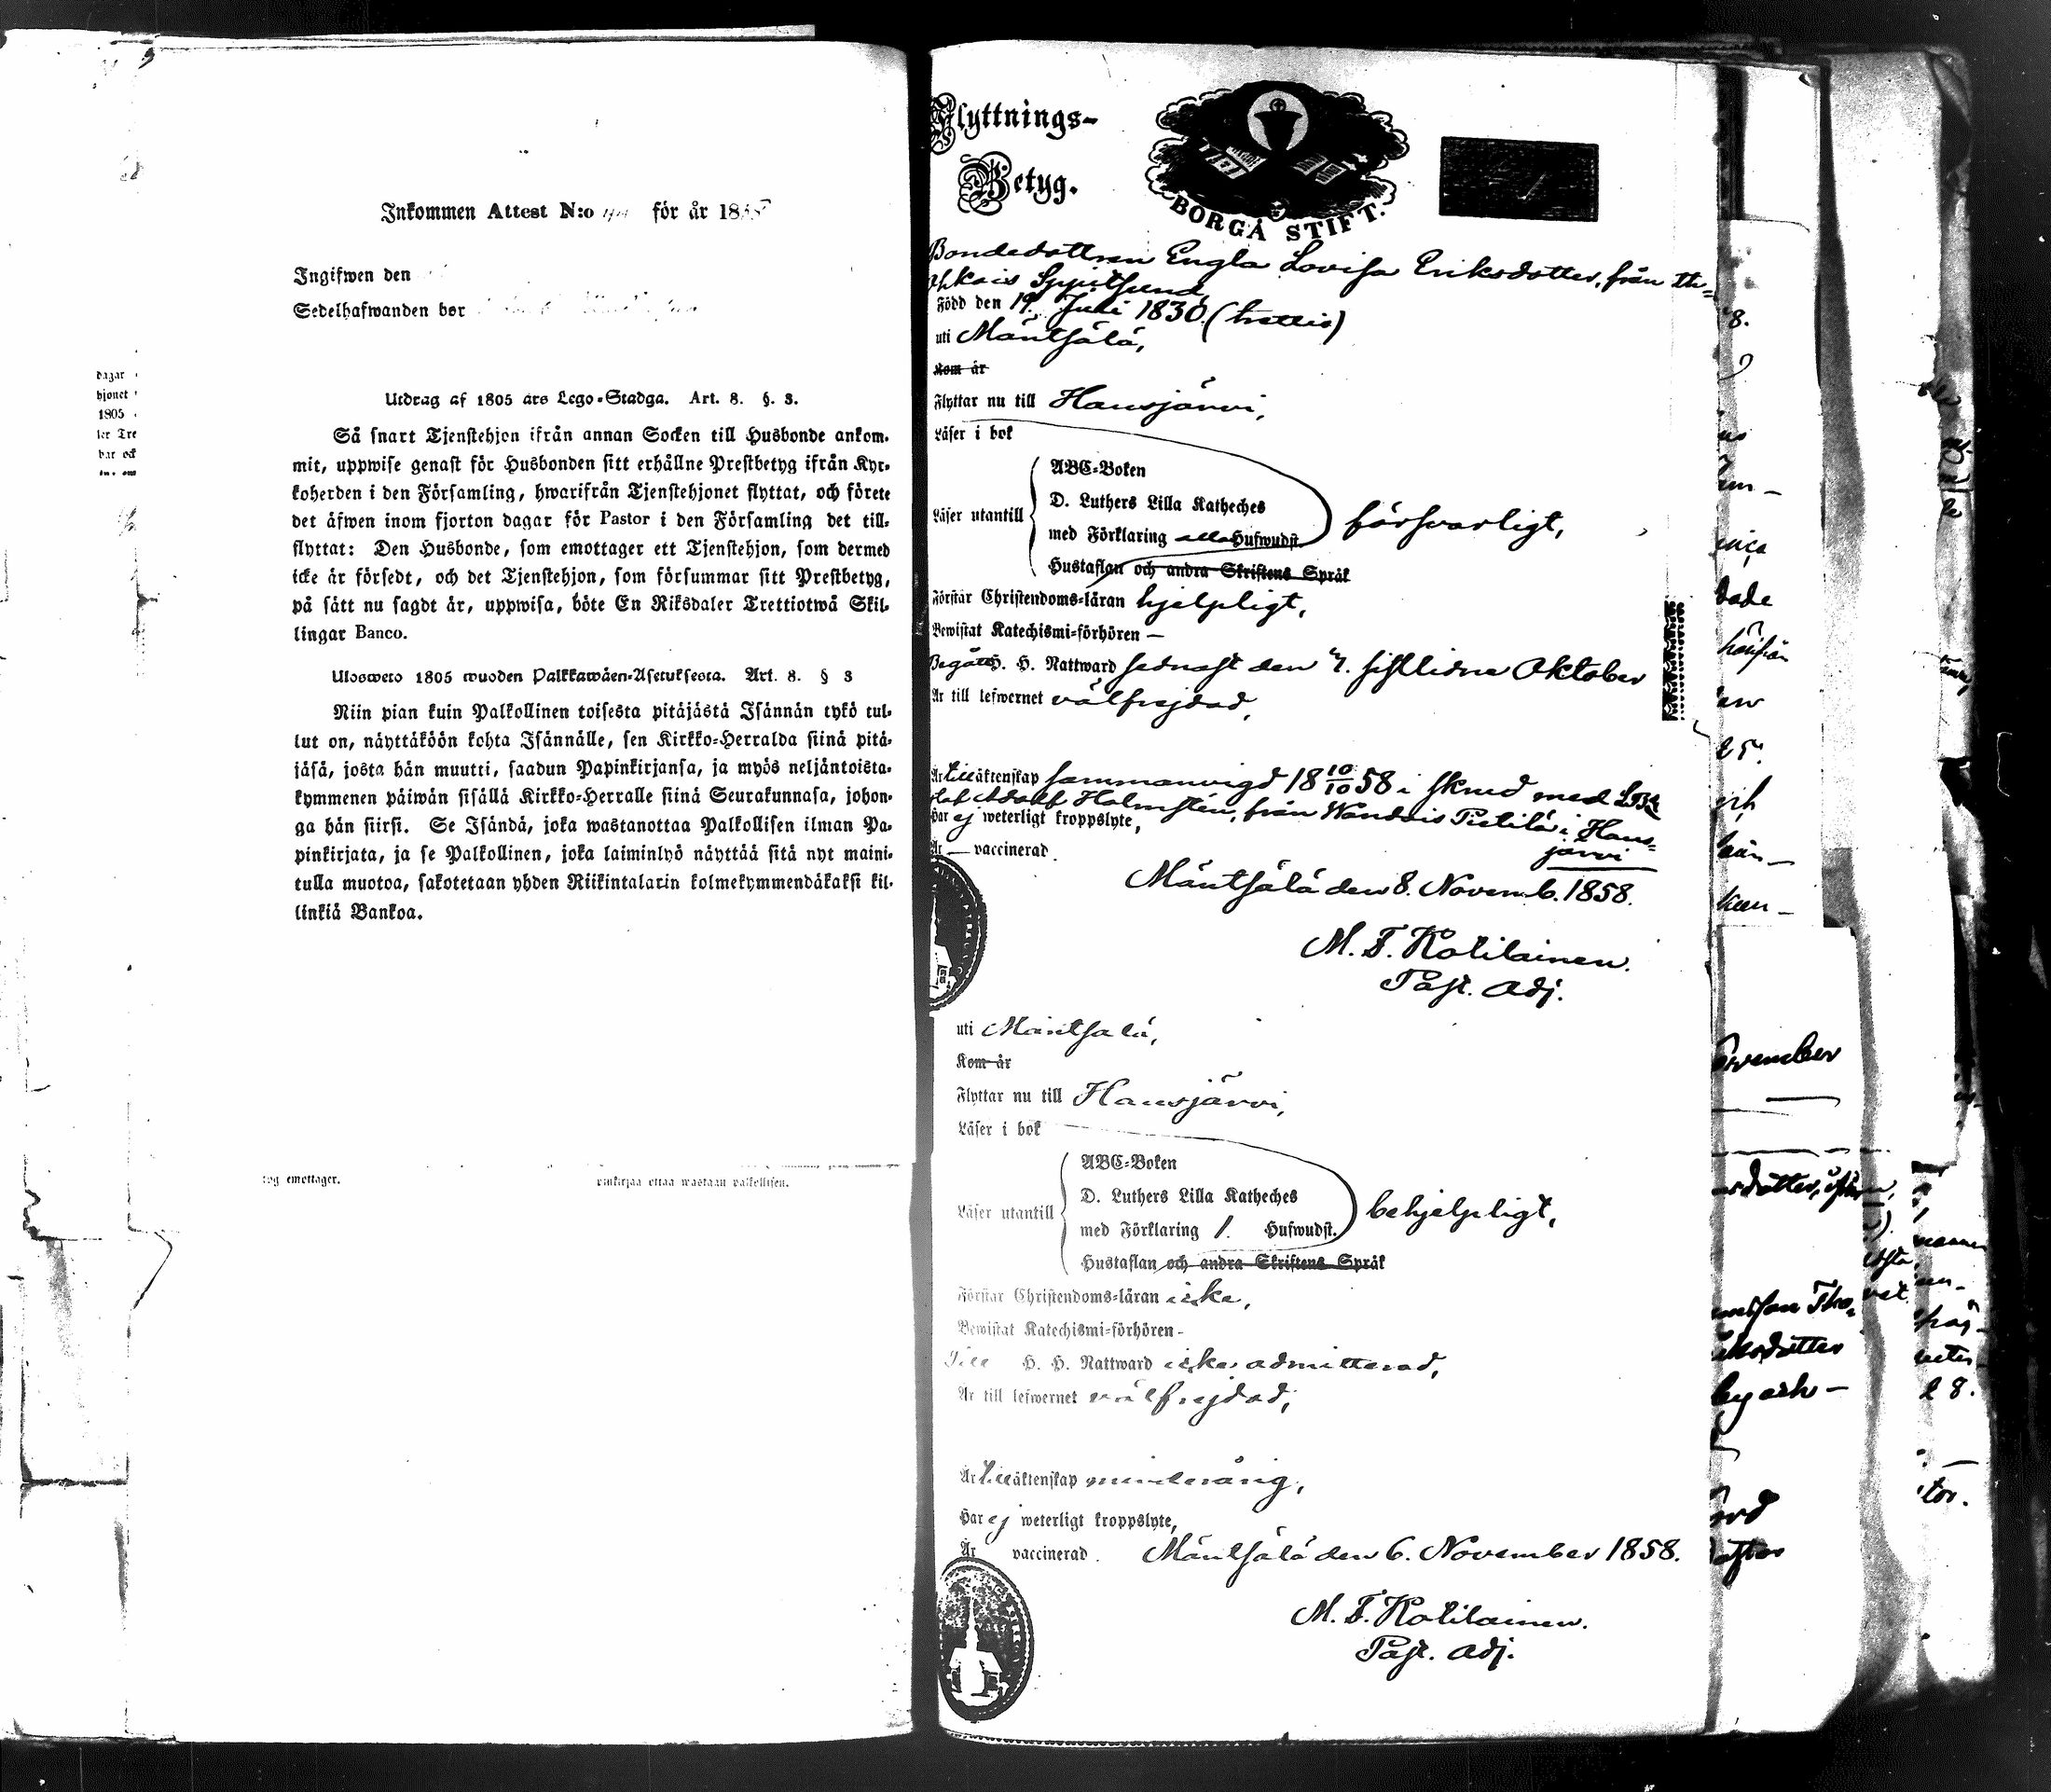 dagar
hjonet
1805
ler Tre
bar och
Inkommen Attest N:o för år 185
Ingifwen den
Sedelhafwanden bor
Utdrag af 1805 års Lego-Stadga. Art. 8. §. 3.
Så snart Tjenstehjon ifrån annan Socken till Husbonde ankom-
mit, uppwise genast för Husbonden sitt erhållne Prestbetyg ifrån Kyr-
koherden i den Församling, hwarifrån Tjenstehjonet flyttat, och förete
det äfwen inom fjorton dagar för Pastor i den Församling det till-
flyttat: Den Husbonde, som emottager ett Tjenstehjon, som dermed
icke är försedt, och det Tjenstehjon, som försummar sitt Prestbetyg,
på sätt nu sagdt är, uppwisa, böte En Riksdaler Trettiotwå Skil-
lingar Banco.
Uloswето 1805 wuoden Palkkawäen-Asetuksesta. Art. 8. § 3
Niin pian kuin Palkollinen toisesta pitäjästä Isännän tykö tul-
lut on, näyttäköön kohta Isännälle, sen Kirkko-Herralda siinä pitä-
jäsä, josta hän muutti, saadun Papinkirjansa, ja myös neljäntoista-
kymmenen päiwän sisällä Kirkko-Herralle siinä Seurakunnasa, johon-
ga hän siirsi. Se Isändä, joka wastanottaa Palkollisen ilman Pa-
pinkirjata, ja se Palkollinen, joka laiminlyö näyttää sitä nyt maini-
tulla muotoa, sakotetaan yhden Riikintalarin kolmekymmendäkaksi kil-
linkiä Bankoa.
emottager.
pinkirjaa ottaa wastaan palkollisen.
Flyttnings-
Betyg.
BORGÅ STIFT.
Bondedottren Engla Lovisa Eriksdotter, från
Född den 19. Juni 1830. (trettio)
uti Mäntsälä,
Kom år
Flyttar nu till Hausjärvi,
Läser i bok
Läser utantill
ABC-Boken
D. Luthers Lilla Katheches
med Förklaring alla Hufwudst.
Hustaflan och andra Skriftens Språk
försvarligt,
Förstår Christendoms-läran hjelpligt,
Bewistat Katechismi-förhören —
Begått H. H. Nattward sednast den sistlidne Oktober
Är till lefwernet välfrejdad,
Är till äktenskap sammanvigd 18 10/10 58 i Skrud med
Adolf Holmstén, från Wandais Pietilä i Haus-
järvi
Har ej weterligt kroppslyte,
Är — vaccinerad.
Mäntsälä den 8. Novemb. 1858.
M. F. Kolilainen.
Past. Adj.
uti Mäntsälä,
Kom år
Flyttar nu till Hausjärvi,
Läser i bok
Läser utantill
ABC-Boken
D. Luthers Lilla Katheches
med Förklaring 1. Hufwudst.
Hustaflan och andra Skriftens Språk
behjelpligt,
Förstår Christendoms-läran icke,
Bewistat Katechismi-förhören -
Till H. H. Nattward icke admitterad,
Är till lefwernet välfrejdad,
Är till äktenskap minderårig,
Har ej weterligt kroppslyte,
Är vaccinerad.
Mäntsälä den 6. November 1858.
M. F. Kolilainen.
Past. Adj.